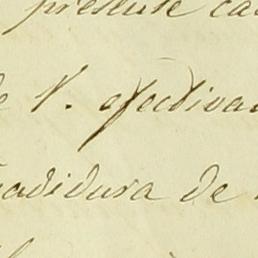 presente ca
e V. efectiva
adidura de